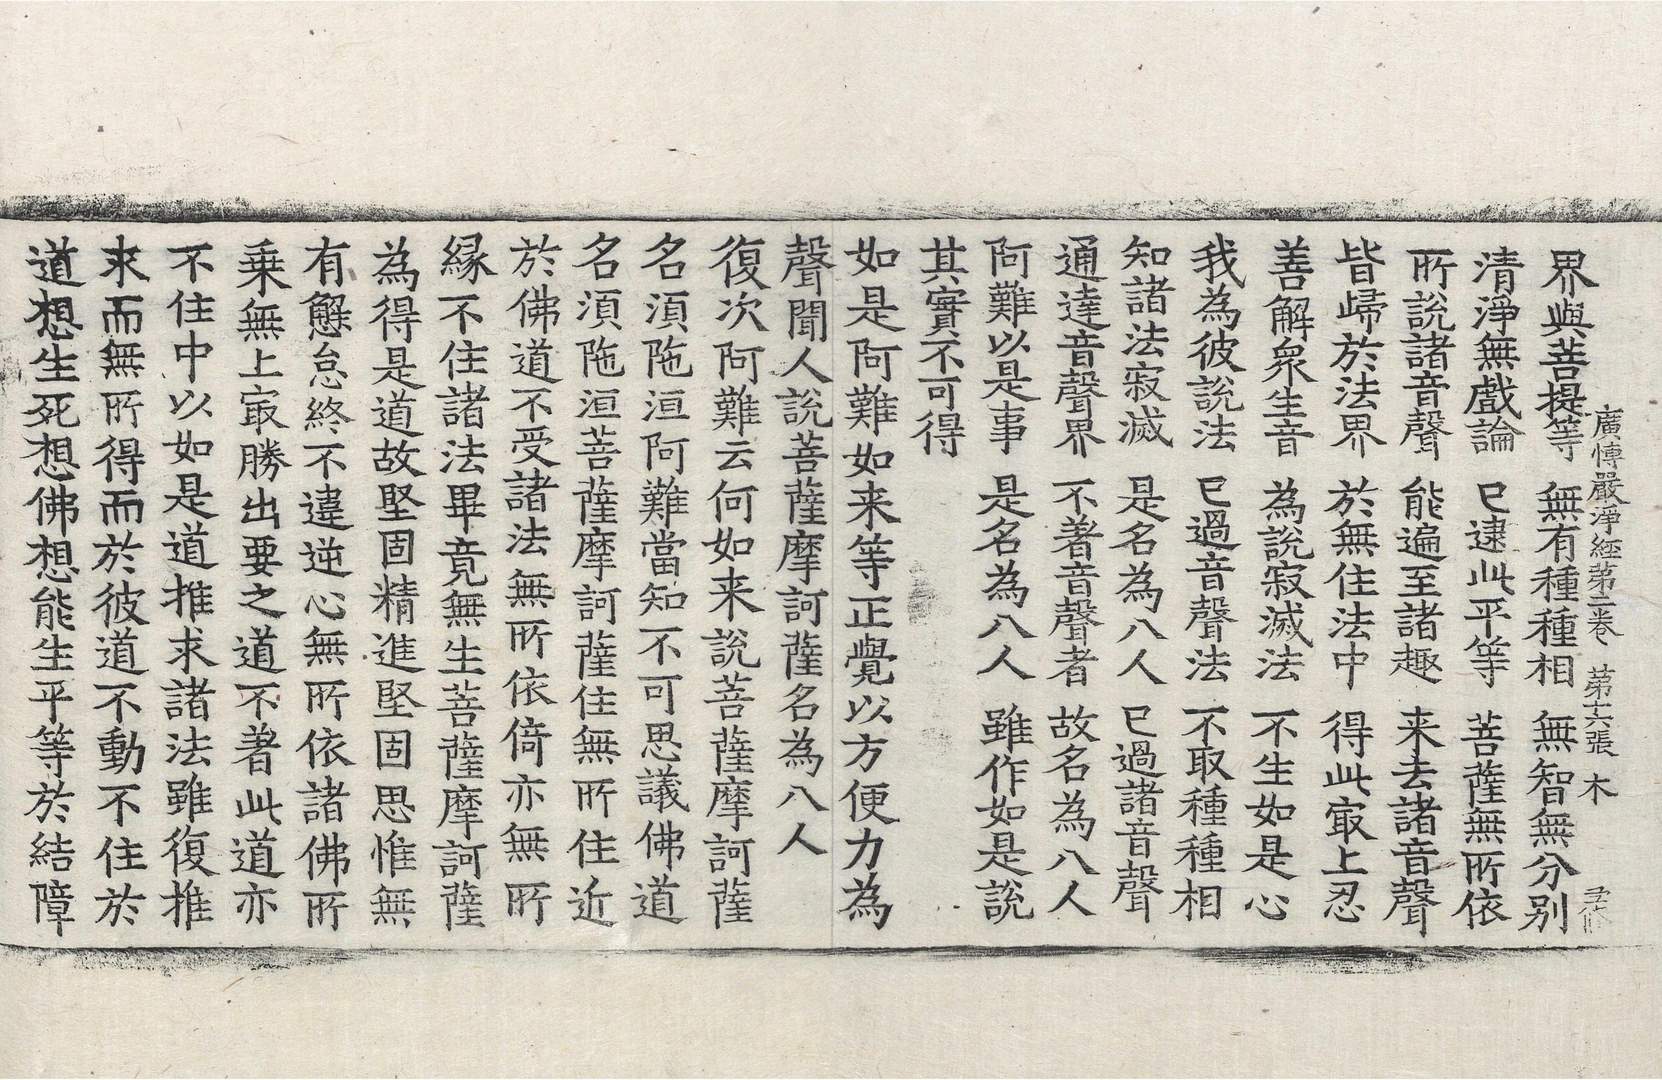 界與菩提等　無有種種相　無智無分別
廣博嚴淨經第二卷　第十六張　木
清淨無戲論　已逮此平等　菩薩無所依
所說諸音聲　能遍至諸趣　来去諸音聲
皆歸於法界　於無住法中　得此㝡上忍
善解衆生音　為說寂滅法　不生如是心
我為彼說法　已過音聲法　不取種種相
知諸法寂滅　是名為八人　已過諸音聲
通達音聲界　不著音聲者　故名為八人
阿難以是事　是名為八人　雖作如是說
其實不可得
如是阿難如来等正覺以方便力為
聲聞人說菩薩摩訶薩名為八人
復次阿難云何如来說菩薩摩訶薩
名須陁洹阿難當知不可思議佛道
名須陁洹菩薩摩訶薩住無所住近
於佛道不受諸法無所依倚亦無所
縁不住諸法畢竟無生菩薩摩訶薩
為得是道故堅固精進堅固思惟無
有懈怠終不違逆心無所依諸佛所
乗無上㝡勝出要之道不著此道亦
不住中以如是道推求諸法雖復推
求而無所得而於彼道不動不住於
道想生死想佛想能生平等於結障